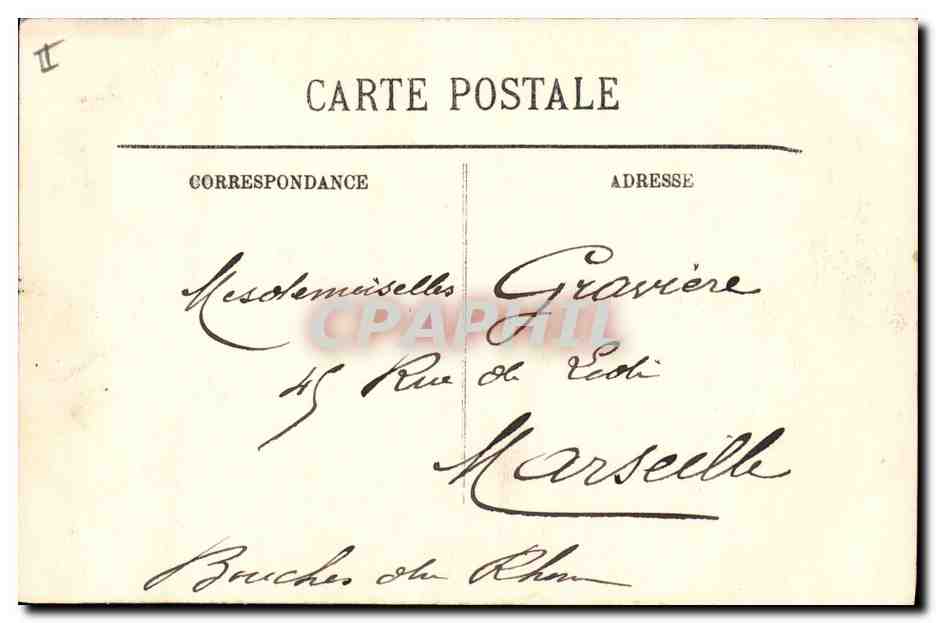 II
CARTE POSTALE
CORRESPONDANCE
ADRESSE
Mesdemoiselles Gravière
CPAPHIL
45 Rue de Lodi
Marseille
Bouches du Rhône